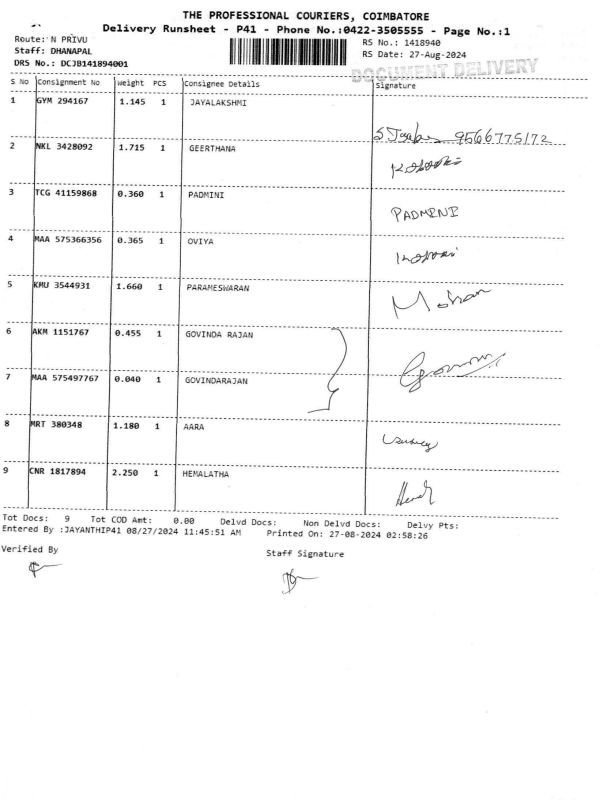 THE PROFESSIONAL COURIERS, COIMBATORE
Delivery Runsheet - P41 - Phone No.:0422-3505555 - Page No.:1
Route: N PRIVU
RS No.: 1418940
Staff: DHANAPAL
RS Date: 27-Aug-2024
DRS No.: DCJB141894001
DOCUMENT DELIVERY
S No Consignment No Weight PCS Consignee Details Signature
1 GYM 294167 1.145 1 JAYALAKSHMI
9566775172
2 NKL 3428092 1.715 1 GEERTHANA
3 TCG 41159868 0.360 1 PADMINI PADMINI
4 MAA 575366356 0.365 1 OVIYA
5 KMU 3544931 1.660 1 PARAMESWARAN Mohan
6 AKM 1151767 0.455 1 GOVINDA RAJAN
7 MAA 575497767 0.040 1 GOVINDARAJAN
8 MRT 380348 1.180 1 AARA
9 CNR 1817894 2.250 1 HEMALATHA
Tot Docs: 9 Tot COD Amt: 0.00 Delvd Docs: Non Delvd Docs: Delvy Pts:
Entered By :JAYANTHIP41 08/27/2024 11:45:51 AM Printed On: 27-08-2024 02:58:26
Verified By Staff Signature